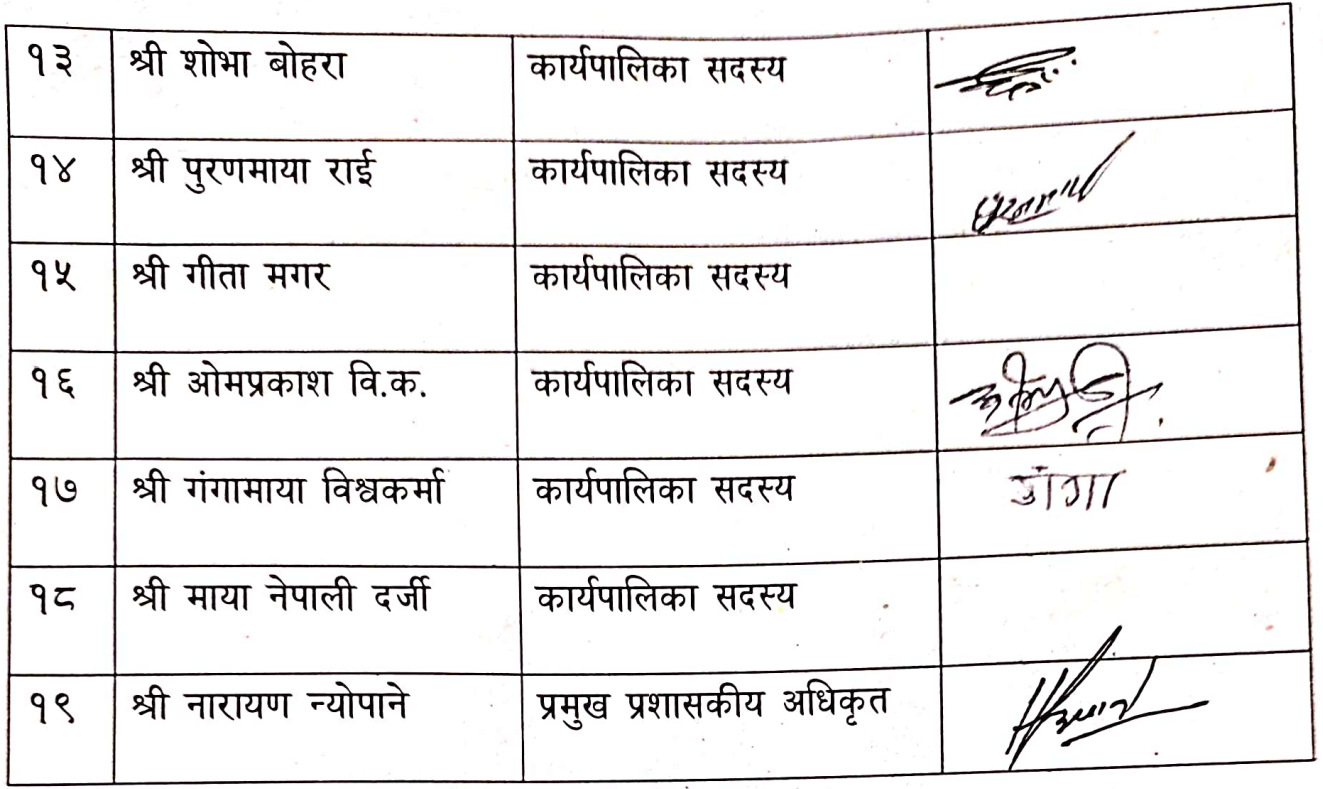 १३ श्री शोभा बोहरा कार्यपालिका सदस्य
१४ श्री पुरणमाया राई कार्यपालिका सदस्य
१५ श्री गीता मगर कार्यपालिका सदस्य
१६ श्री ओमप्रकाश वि.क. कार्यपालिका सदस्य
१७ श्री गंगामाया विश्वकर्मा कार्यपालिका सदस्य गंगा
१८ श्री माया नेपाली दर्जी कार्यपालिका सदस्य
१९ श्री नारायण न्योपाने प्रमुख प्रशासकीय अधिकृत